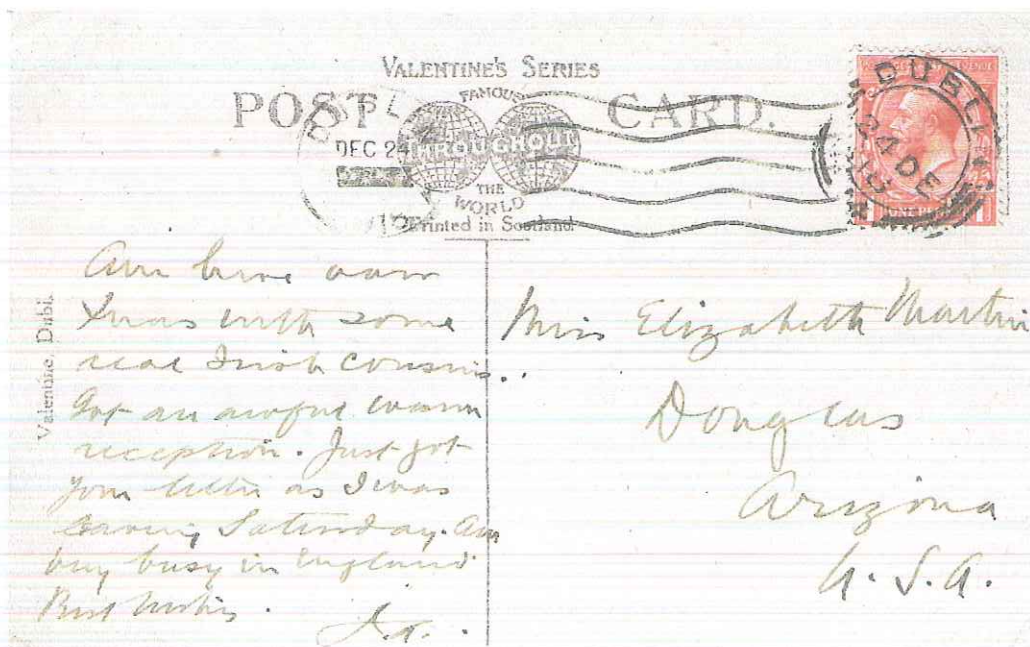 VALENTINE'S SERIES
POST CARD.
FAMOUS
THROUGHOUT
THE
WORLD
DEC 24
Printed in Scotland
DUBLIN
24 DE
Valentine, Dubl.
Am here
Xmas with some
real Irish cousins.
Got an awful warm
reception. Just got
your letter as I was
leaving Saturday. Am
busy in England
Best wishes.
Miss Elizabeth Martin
Douglas
Arizona
U.S.A.